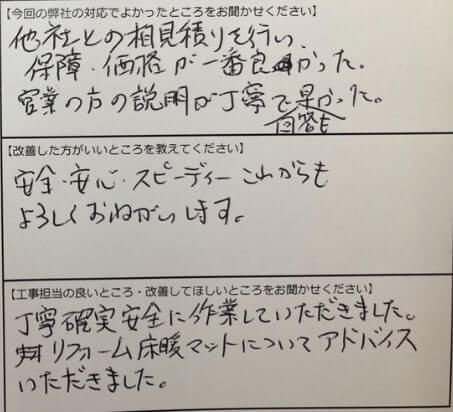 【今回の弊社の対応でよかったところをお聞かせください】
他社との相見積りを行い、
保障・価格が一番良かった。
営業の方の説明が丁寧で早かった。
回答も
【改善した方がいいところを教えてください】
安全・安心・スピーディーこれからも
よろしくおねがいします。
【工事担当の良いところ・改善してほしいところをお聞かせください】
丁寧確実安全に作業していただきました。
リフォーム床暖マットについてアドバイス
いただきました。